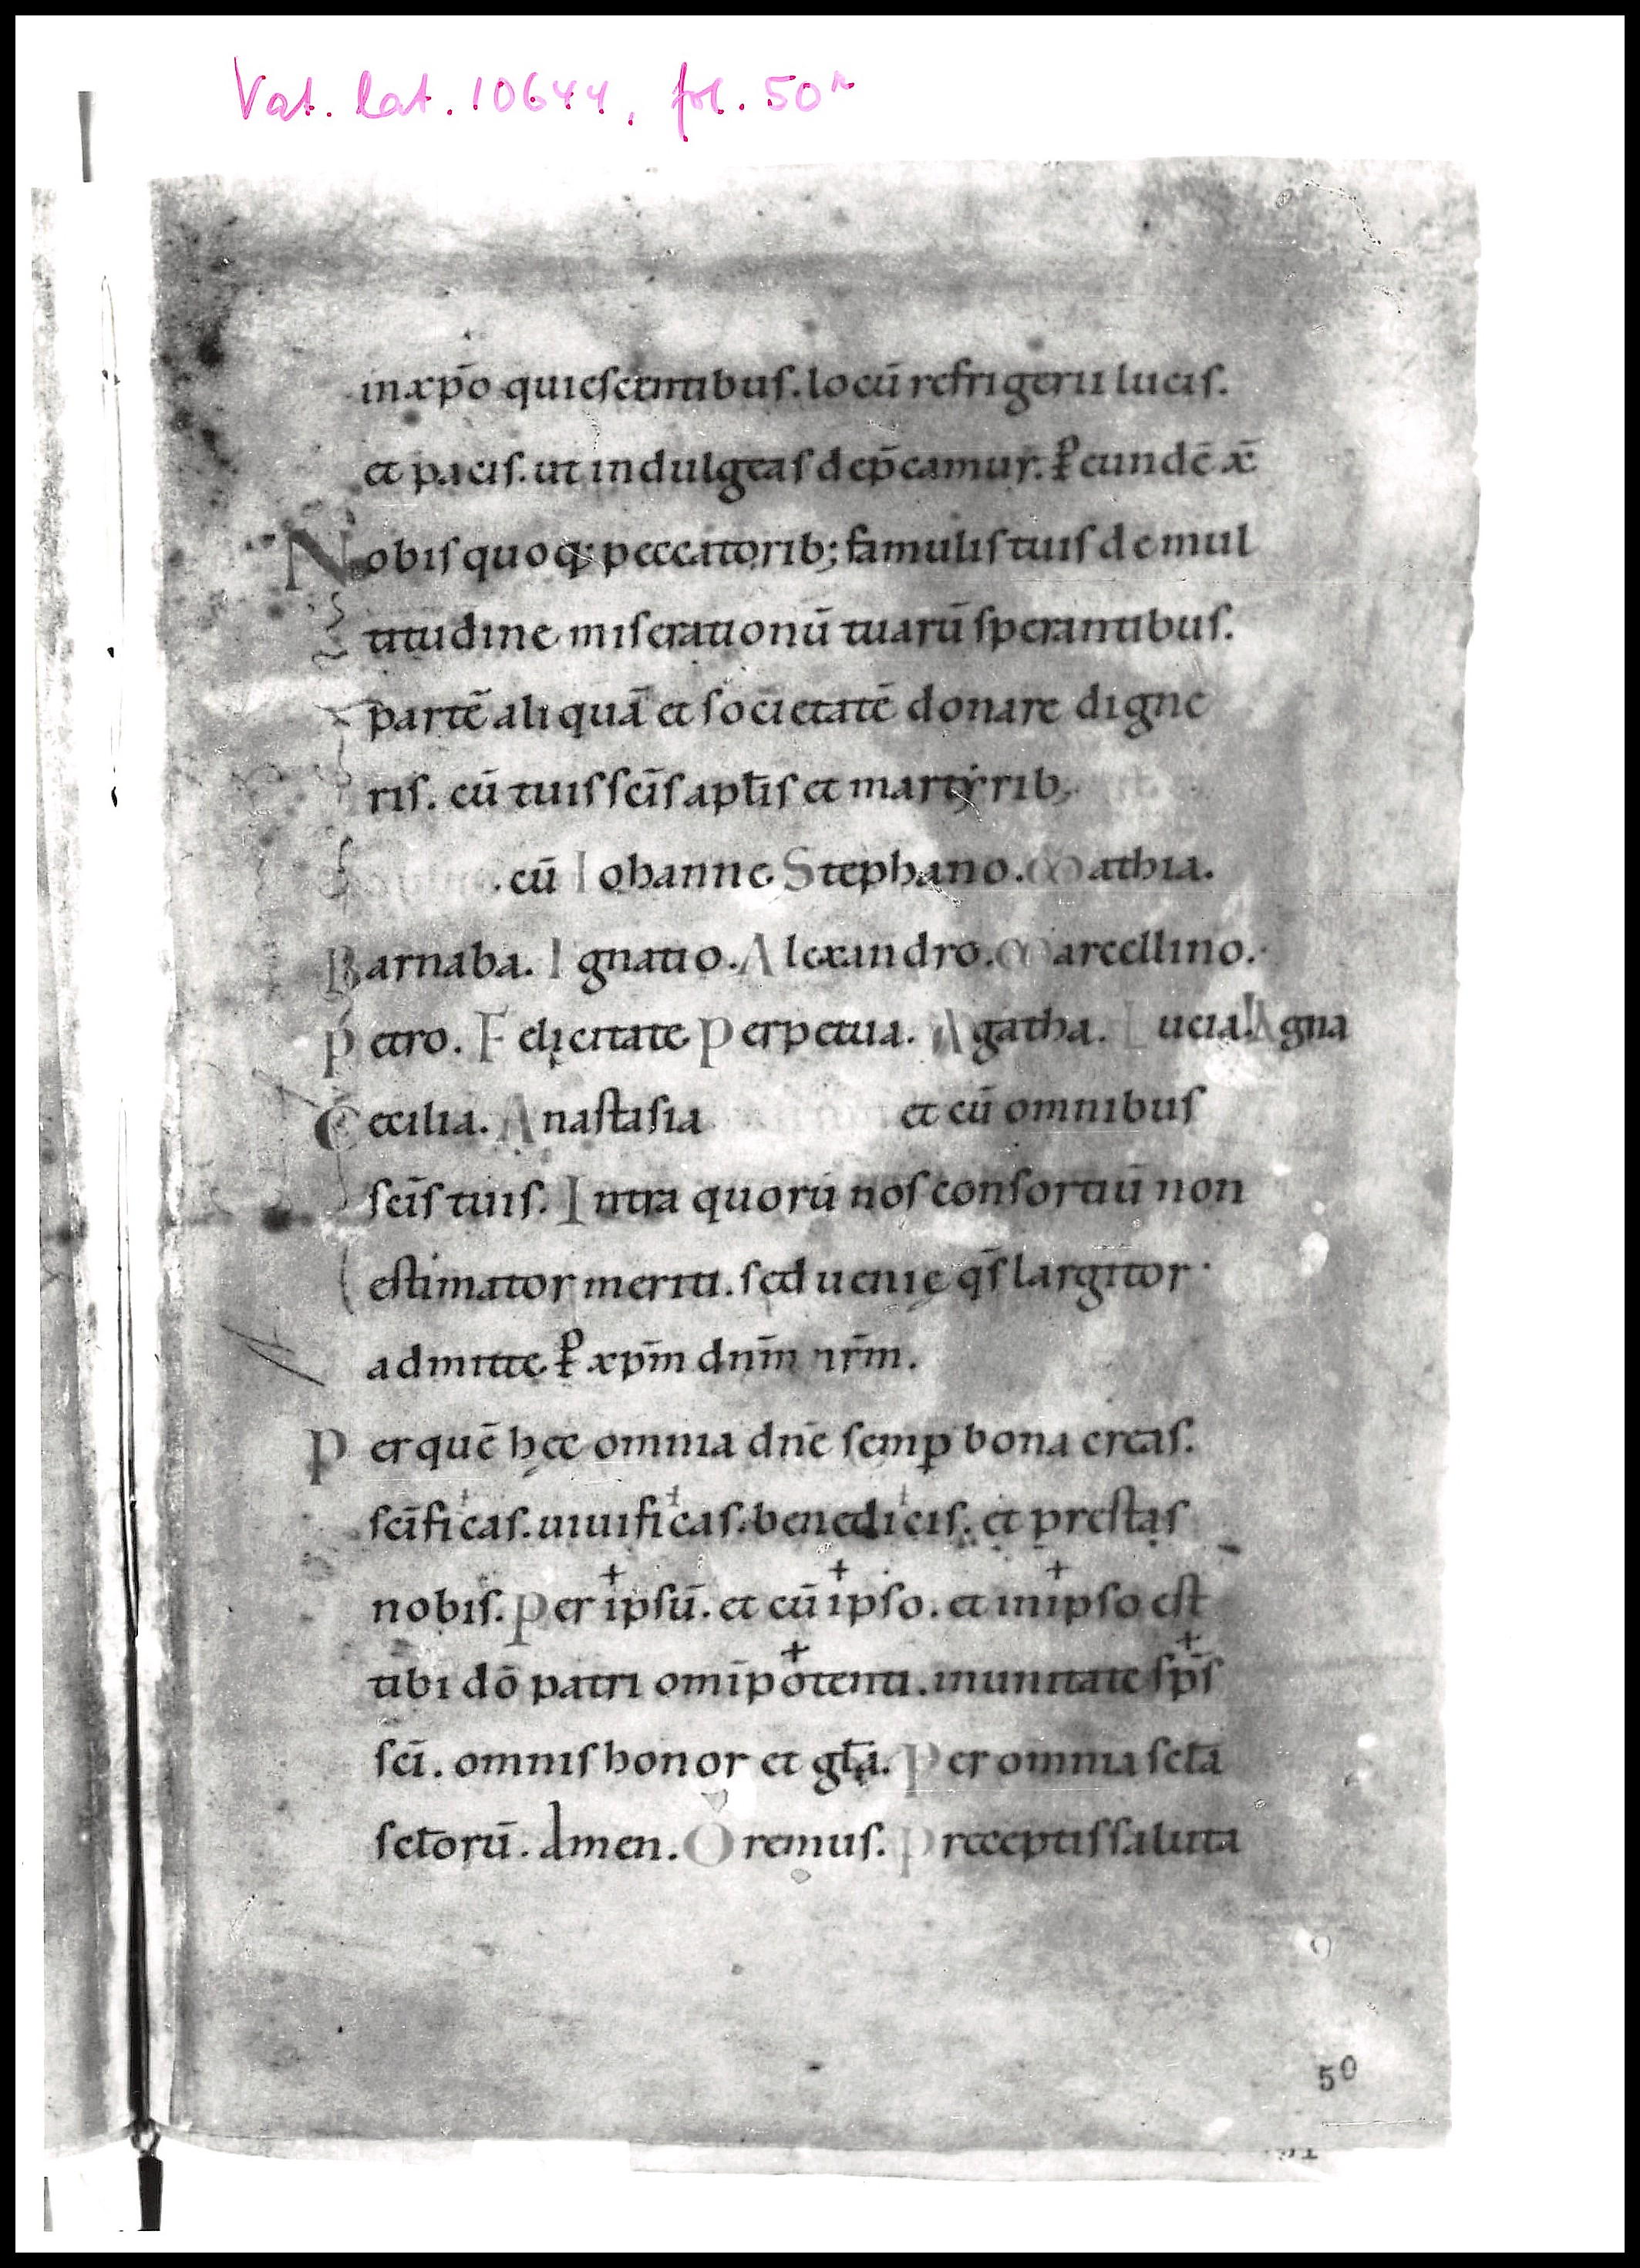 Vat. lat. 10644, fol. 50r
in xp̄o quiescentibus. locū refrigerii lucis.
et pacis. ut indulgeas dep̄camur. ꝑ eundē xp̄
Nobis quoq; peccatorib; famulis tuis de mul
titudine miserationū tuarū sperantibus.
partē aliquā et societatē donare digne
ris. cū tuis sc̄is apl̄is et martyrib;
. cū Iohanne Stephano. Mathia.
Barnaba. Ignatio. Alexandro. Marcellino.
Petro. Felicitate Perpetua. Agatha. Lucia. Agna
Cecilia. Anastasia et cū omnibus
sc̄is tuis. Intra quorū nos consortiū non
estimator meriti. sed uenię qs̄ largitor.
admitte ꝑ xp̄m dn̄m nr̄m.
Per quē hęc omnia dn̄e semꝑ bona creas.
sc̄ificas. uiuificas. benedicis. et prestas
nobis. Per ipsū. et cū ipso. et in ipso est
tibi dō patri omīpotenti. in unitate sp̄s
sc̄i. omnis honor et gl̄a. Per omnia secl̄a
secl̄orū. Amen. Oremus. Preceptis saluta
50